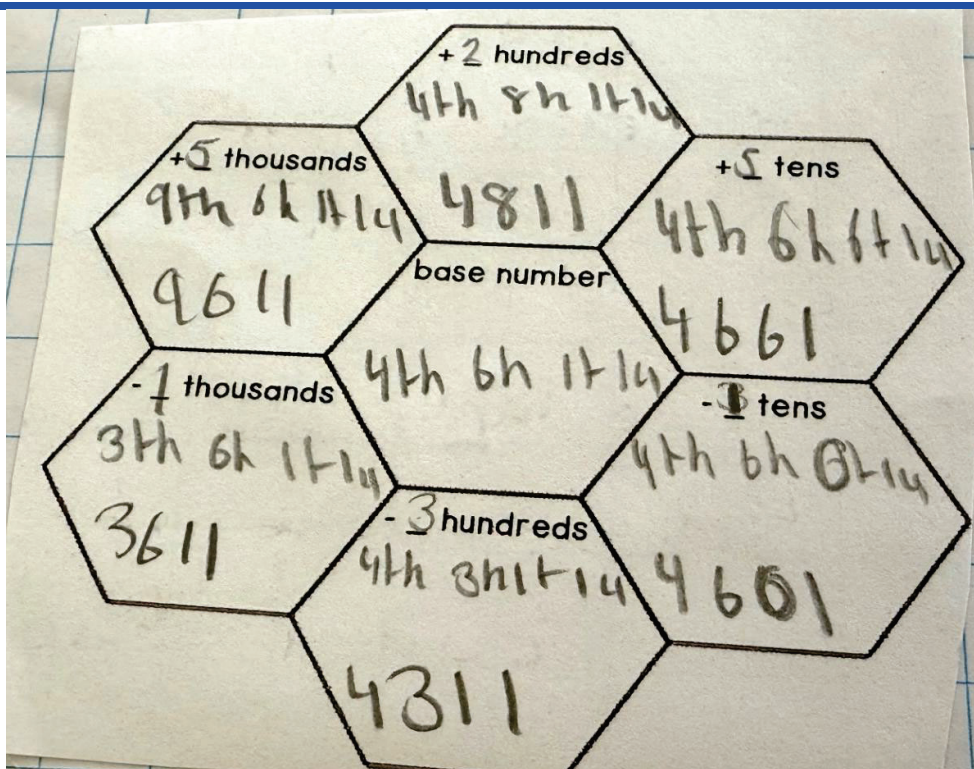 + 2 hundreds
4th 8h 1t 1u
4811
+ 5 thousands
9th 6h 1t 1u
9611
+ 5 tens
4th 6h 6t 1u
4661
base number
4th 6h 1t 1u
- 1 thousands
3th 6h 1t 1u
3611
- 1 tens
4th 6h 0t 1u
4601
- 3 hundreds
4th 3h 1t 1u
4311